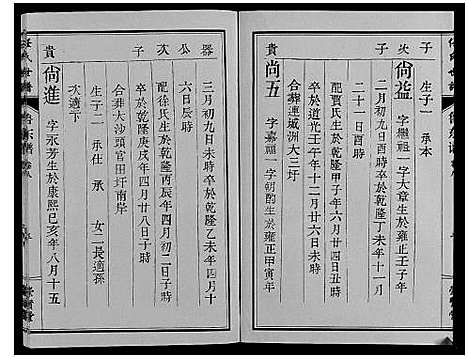 子 生子一 承本
次
子 尙益 字繼祖一字大章生於雍正壬子年
二月初九日未時卒於乾隆丁未年十一月
二十一日酉時
配賈氏生於乾隆甲子年六月廿四日丑時
卒於道光壬午年十二月廿六日未時
合葬連城洲大三圩
貴 尙五 字嘉福一字朝酌生於雍正甲寅年
器
公
次
子 三月初九日未時卒於乾隆乙未年四月
六日辰時
配徐氏生於乾隆丙辰年四月初二日子時
卒於乾隆庚戌年四月廿八日子時
合葬大沙頭官田圩南岸
生子二 承仕 承 女二長適孫
次適卞
貴 尙進 字永芳生於康熙己亥年八月十五